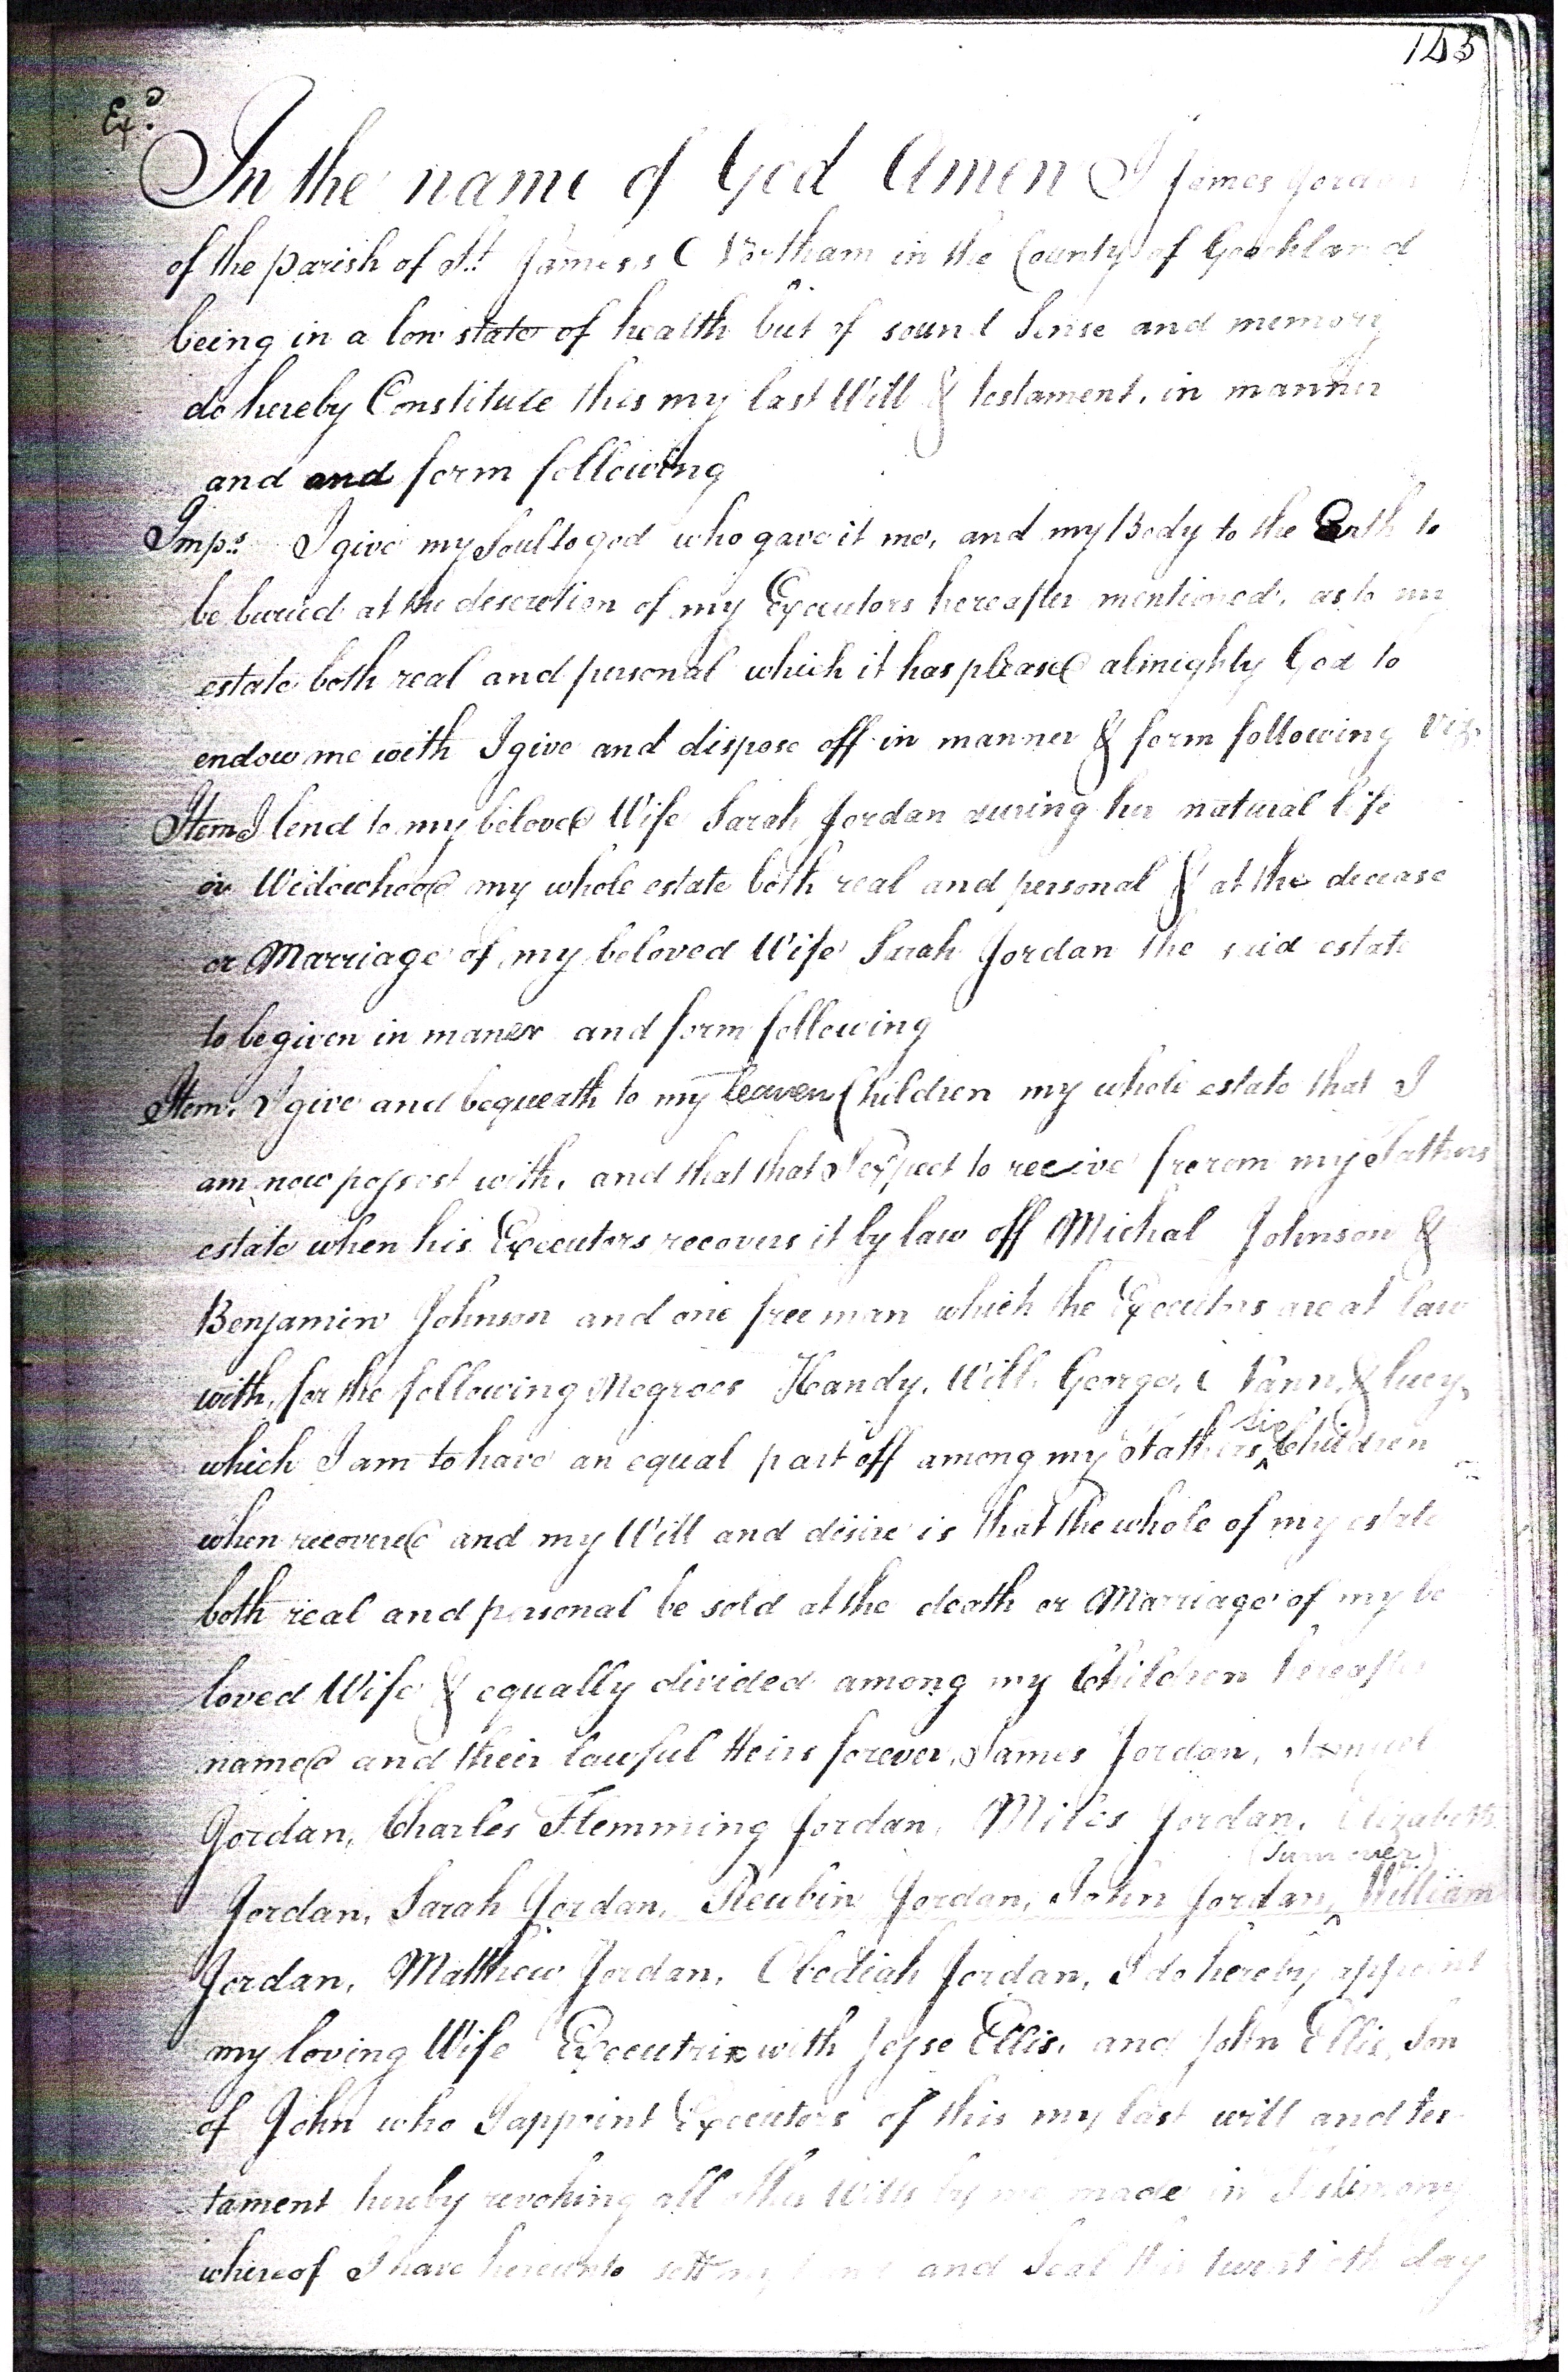 145
Exd.
In the name of God Amen I James Jordan
of the parish of St. Jameses Northam in the County of Goochland
being in a low state of health but of sound Sense and memory
do hereby Constitute this my last Will & testament, in manner
and and form following
Imps. I give my Soul to god who gave it me, and my Body to the Earth to
be buried at the descretion of my Executors hereafter mentioned, as to my
estate both real and personal which it has pleased almighty God to
endow me with I give and dispose off in manner & form following Viz.
Item I lend to my beloved Wife Sarah Jordan during her natural life
or Widowhood my whole estate both real and personal & at the decease
or Marriage of my beloved Wife Sarah Jordan the said estate
to be given in maner and form following
Item. I give and bequeath to my leaven Children my whole estate that I
am now possest with, and that that I expect to receive frerom my Fathers
estate when his Executors recovers it by law off Michal Johnson &
Benjamin Johnson and one free man which the Executors are at law
with, for the following Negroes Handy, Will, George, Nann, & lucy,
which I am to have an equal part off among my Fathers six Children
when recovered and my Will and desire is that the whole of my estate
both real and personal be sold at the death or Marriage of my be
loved Wife & equally divided among my Children hereafter
named and their lawful Heirs forever, James Jordan, Samuel
Jordan, Charles Flemming Jordan, Miles Jordan, Elizabeth
Jordan, Sarah Jordan, Reubin Jordan, John Jordan, (Turn over) William
Jordan, Matthew Jordan, Obediah Jordan, I do hereby appoint
my loving Wife Executrix with Jesse Ellis, and John Ellis, Son
of John who I appoint Executors of this my last will and tes
tament hereby revoking all other Wills by me made in Testimony
whereof I have hereunto sett my and Seal this twentieth day